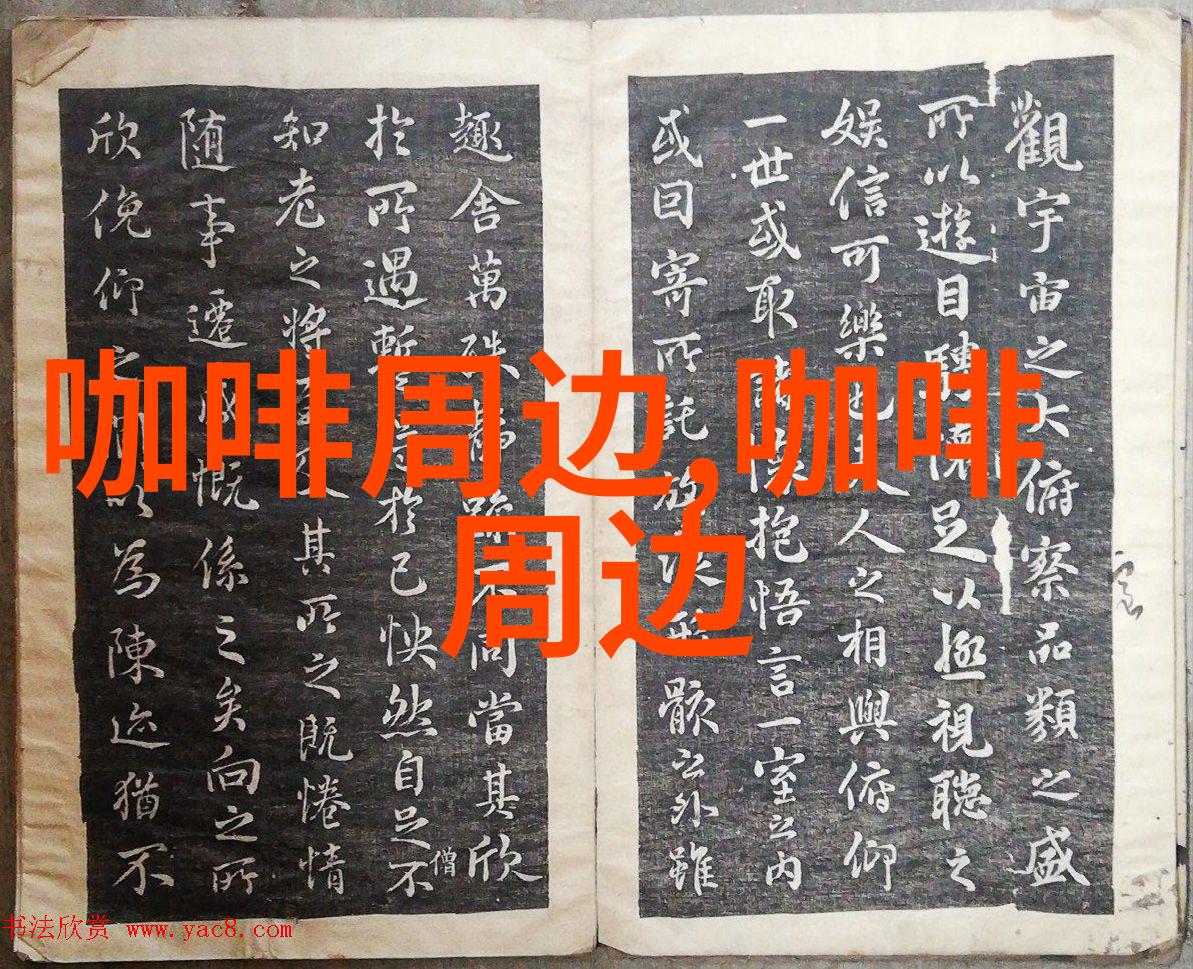 咖啡周边,咖啡
周边
觀宇宙之大俯察品類之盛
所以遊目騁懷足以極視聽之
娛信可樂也夫人之相與俯仰
一世或取諸懷抱悟言一室之內
或因寄所託放浪形骸之外雖
趣舍萬殊不同當其欣
於所遇暫得於己怏然自足不
僧
知老之將至及其所之既惓情
随事遷感慨係之矣向之所
欣俛仰之以為陳迹猶不
书法欣赏 www.yac8.com